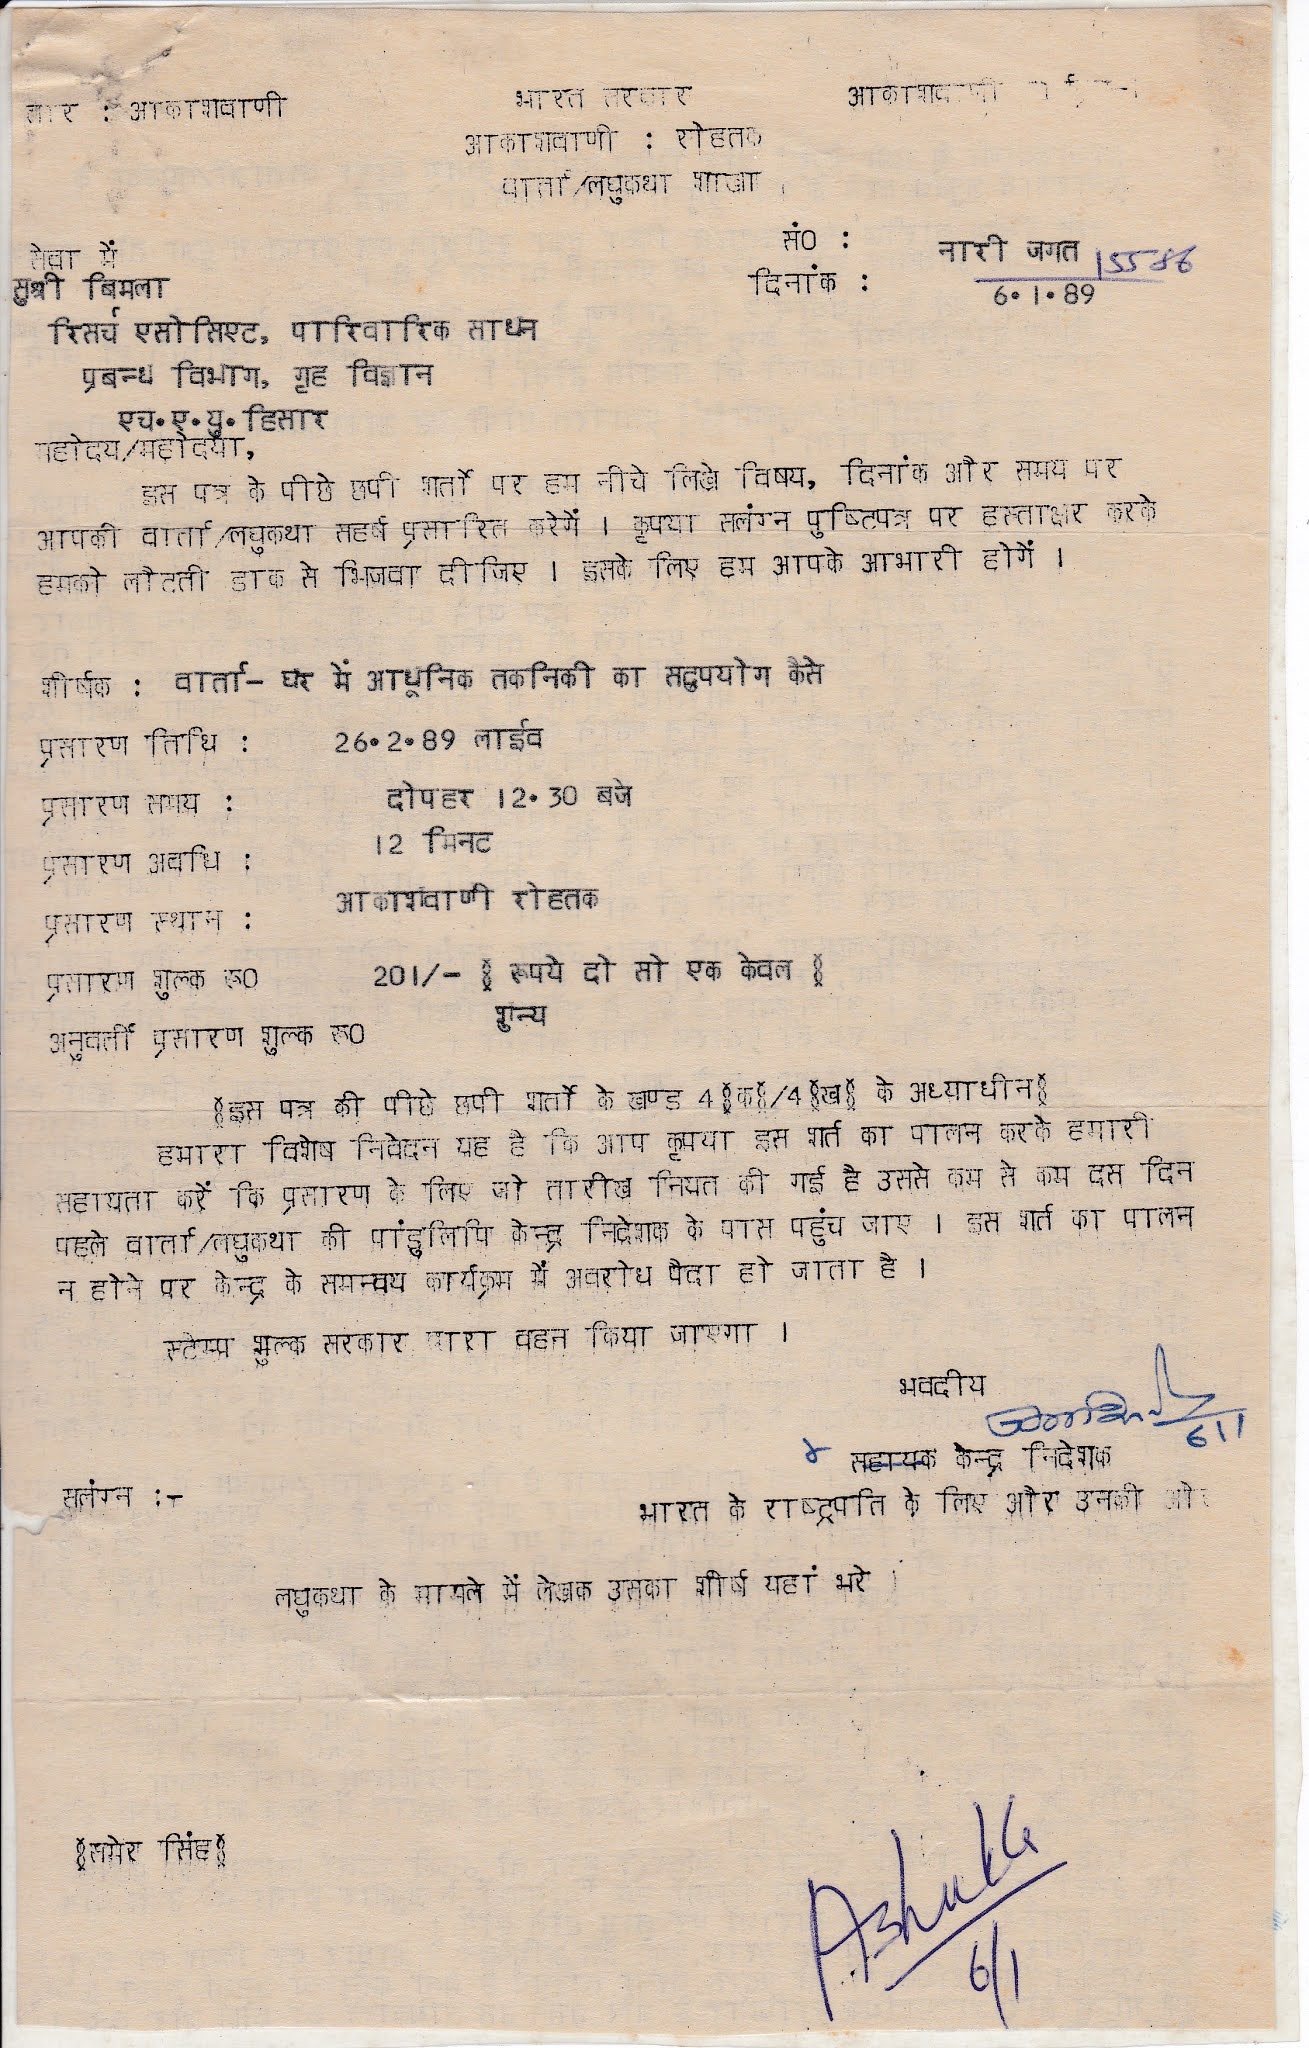 तार : आकाशवाणी
भारत सरकार
आकाशवाणी
आकाशवाणी : रोहतक
वार्ता/लघुकथा शाखा
सं0 : नारी जगत 15586
दिनांक : 6.1.89
सेवा में
सुश्री बिमला
रिसर्च एसोसिएट, पारिवारिक साधन
प्रबन्ध विभाग, गृह विज्ञान
एच.ए.यु.हिसार
महोदय/महोदया,
इस पत्र के पीछे छपी शर्तो पर हम नीचे लिखे विषय, दिनांक और समय पर
आपकी वार्ता/लघुकथा सहर्ष प्रसारित करेगें । कृपया सलंग्न पुष्टिपत्र पर हस्ताक्षर करके
हमको लौटती डाक से भिजवा दीजिए । इसके लिए हम आपके आभारी होगें ।
शीर्षक : वार्ता- घर में आधूनिक तकनिकी का सदुपयोग कैसे
प्रसारण तिथि : 26.2.89 लाईव
प्रसारण समय : दोपहर 12.30 बजे
प्रसारण अवधि : 12 मिनट
प्रसारण स्थान : आकाशवाणी रोहतक
प्रसारण शुल्क रू0 201/- ( रूपये दो सो एक केवल )
अनुवर्ती प्रसारण शुल्क रू0 शुन्य
(इस पत्र की पीछे छपी शर्तो के खण्ड 4(क)/4(ख) के अध्याधीन)
हमारा विशेष निवेदन यह है कि आप कृपया इस शर्त का पालन करके हमारी
सहायता करें कि प्रसारण के लिए जो तारीख नियत की गई है उससे कम से कम दस दिन
पहले वार्ता/लघुकथा की पांडुलिपि केन्द्र निदेशक के पास पहुंच जाए । इस शर्त का पालन
न होने पर केन्द्र के समन्वय कार्यक्रम में अवरोध पैदा हो जाता है ।
स्टैम्प शुल्क सरकार वहन किया जाएगा ।
भवदीय
6/1
सहायक केन्द्र निदेशक
सलंग्न :-
भारत के राष्ट्रपति के लिए और उनकी ओर
लघुकथा के मामले में लेखक उसका शीर्ष यहां भरे ।
(समेर सिंह)
AShukla
6/1